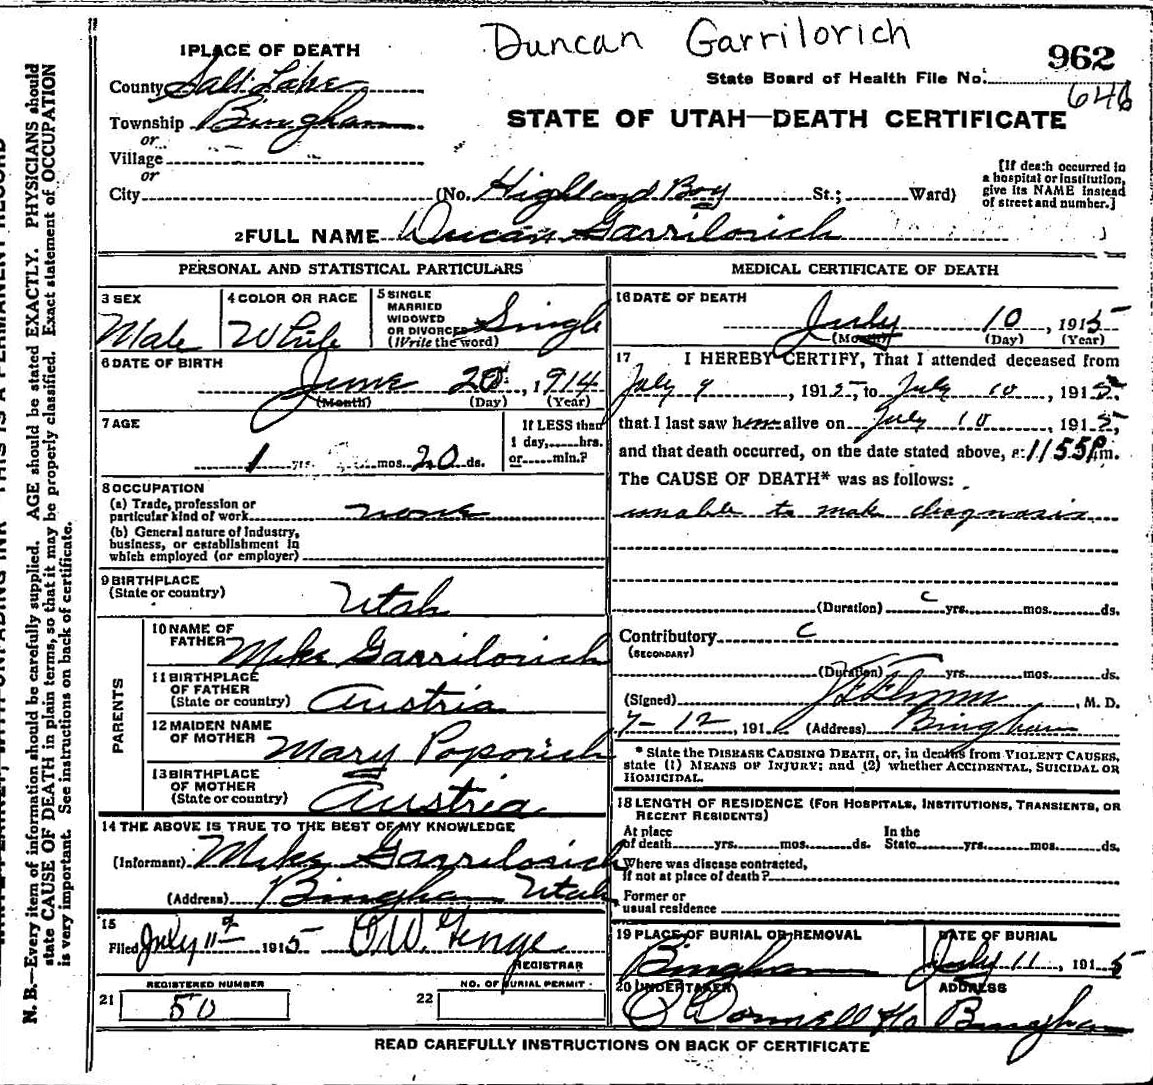 Duncan Garrilorich
962
State Board of Health File No.
646
STATE OF UTAH—DEATH CERTIFICATE
1 PLACE OF DEATH
County Salt Lake
Township Bingham
or
Village
or
City (No. Highland Boy St.; Ward)
[If death occurred in
a hospital or institution,
give its NAME instead
of street and number.]
2 FULL NAME Duncan Garrilorich
PERSONAL AND STATISTICAL PARTICULARS
3 SEX
Male
4 COLOR OR RACE
White
5 SINGLE
MARRIED
WIDOWED
OR DIVORCED
(Write the word)
Single
6 DATE OF BIRTH
June 20, 1914
(Month) (Day) (Year)
7 AGE
1 yrs. mos. 20 ds.
If LESS than
1 day, hrs.
or min.?
8 OCCUPATION
(a) Trade, profession or
particular kind of work none
(b) General nature of industry,
business, or establishment in
which employed (or employer)
9 BIRTHPLACE
(State or country)
Utah
PARENTS
10 NAME OF
FATHER Mike Garrilorich
11 BIRTHPLACE
OF FATHER
(State or country) Austria
12 MAIDEN NAME
OF MOTHER Mary Poporich
13 BIRTHPLACE
OF MOTHER
(State or country) Austria
14 THE ABOVE IS TRUE TO THE BEST OF MY KNOWLEDGE
(Informant) Mike Garrilorich
(Address) Bingham Utah
15
Filed July 11, 1915 O.W. Genge
REGISTRAR
REGISTERED NUMBER
21 50
NO. OF BURIAL PERMIT
22
MEDICAL CERTIFICATE OF DEATH
16 DATE OF DEATH
July 10, 1915
(Month) (Day) (Year)
17 I HEREBY CERTIFY, That I attended deceased from
July 9, 1915, to July 10, 1915,
that I last saw him alive on July 10 1915,
and that death occurred, on the date stated above, at 1155P m.
The CAUSE OF DEATH* was as follows:
unable to make diagnosis
(Duration) yrs. mos. ds.
Contributory
(SECONDARY)
(Duration) yrs. mos. ds.
(Signed) , M. D.
7-12, 191 (Address) Bingham
* State the DISEASE CAUSING DEATH, or, in deaths from VIOLENT CAUSES,
state (1) MEANS OF INJURY; and (2) whether ACCIDENTAL, SUICIDAL OR
HOMICIDAL.
18 LENGTH OF RESIDENCE (FOR HOSPITALS, INSTITUTIONS, TRANSIENTS, OR
RECENT RESIDENTS)
At place
of death yrs. mos. ds.
In the
State yrs. mos. ds.
Where was disease contracted,
if not at place of death?
Former or
usual residence
19 PLACE OF BURIAL OR REMOVAL
Bingham
DATE OF BURIAL
July 11, 1915
20 UNDERTAKER
O'Donnell
ADDRESS
Bingham
READ CAREFULLY INSTRUCTIONS ON BACK OF CERTIFICATE
N. B.—Every item of information should be carefully supplied. AGE should be stated EXACTLY. PHYSICIANS should
state CAUSE OF DEATH in plain terms, so that it may be properly classified. Exact statement of OCCUPATION
is very important. See instructions on back of certificate.